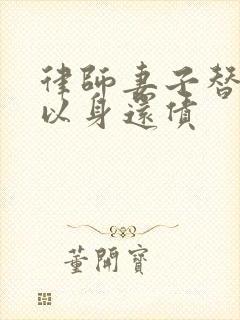 律師妻子替
以身還債
董開寶